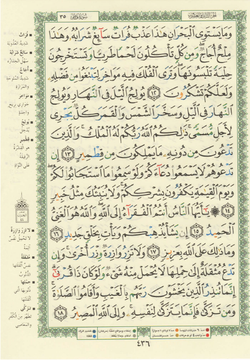 ٣٥
وَمَا يَسْتَوِى ٱلْبَحْرَانِ هَٰذَا عَذْبٌ فُرَاتٌ سَآئِغٌ شَرَابُهُۥ وَهَٰذَا
مِلْحٌ أُجَاجٌ وَمِن كُلٍّ تَأْكُلُونَ لَحْمًا طَرِيًّا وَتَسْتَخْرِجُونَ
حِلْيَةً تَلْبَسُونَهَا وَتَرَى ٱلْفُلْكَ فِيهِ مَوَاخِرَ لِتَبْتَغُوا۟ مِن فَضْلِهِۦ
وَلَعَلَّكُمْ تَشْكُرُونَ ١٢ يُولِجُ ٱلَّيْلَ فِى ٱلنَّهَارِ وَيُولِجُ
ٱلنَّهَارَ فِى ٱلَّيْلِ وَسَخَّرَ ٱلشَّمْسَ وَٱلْقَمَرَ كُلٌّ يَجْرِى
لِأَجَلٍ مُّسَمًّى ذَٰلِكُمُ ٱللَّهُ رَبُّكُمْ لَهُ ٱلْمُلْكُ وَٱلَّذِينَ
تَدْعُونَ مِن دُونِهِۦ مَا يَمْلِكُونَ مِن قِطْمِيرٍ ١٣ إِن
تَدْعُوهُمْ لَا يَسْمَعُوا۟ دُعَآءَكُمْ وَلَوْ سَمِعُوا۟ مَا ٱسْتَجَابُوا۟ لَكُمْ
وَيَوْمَ ٱلْقِيَٰمَةِ يَكْفُرُونَ بِشِرْكِكُمْ وَلَا يُنَبِّئُكَ مِثْلُ خَبِيرٍ
١٤ يَٰٓأَيُّهَا ٱلنَّاسُ أَنتُمُ ٱلْفُقَرَآءُ إِلَى ٱللَّهِ وَٱللَّهُ هُوَ ٱلْغَنِىُّ
ٱلْحَمِيدُ ١٥ إِن يَشَأْ يُذْهِبْكُمْ وَيَأْتِ بِخَلْقٍ جَدِيدٍ ١٦
وَمَا ذَٰلِكَ عَلَى ٱللَّهِ بِعَزِيزٍ ١٧ وَلَا تَزِرُ وَازِرَةٌ وِزْرَ أُخْرَىٰ وَإِن
تَدْعُ مُثْقَلَةٌ إِلَىٰ حِمْلِهَا لَا يُحْمَلْ مِنْهُ شَىْءٌ وَلَوْ كَانَ ذَا قُرْبَىٰٓ
إِنَّمَا تُنذِرُ ٱلَّذِينَ يَخْشَوْنَ رَبَّهُم بِٱلْغَيْبِ وَأَقَامُوا۟ ٱلصَّلَوٰةَ
وَمَن تَزَكَّىٰ فَإِنَّمَا يَتَزَكَّىٰ لِنَفْسِهِۦ وَإِلَى ٱللَّهِ ٱلْمَصِيرُ ١٨
٤٣٦